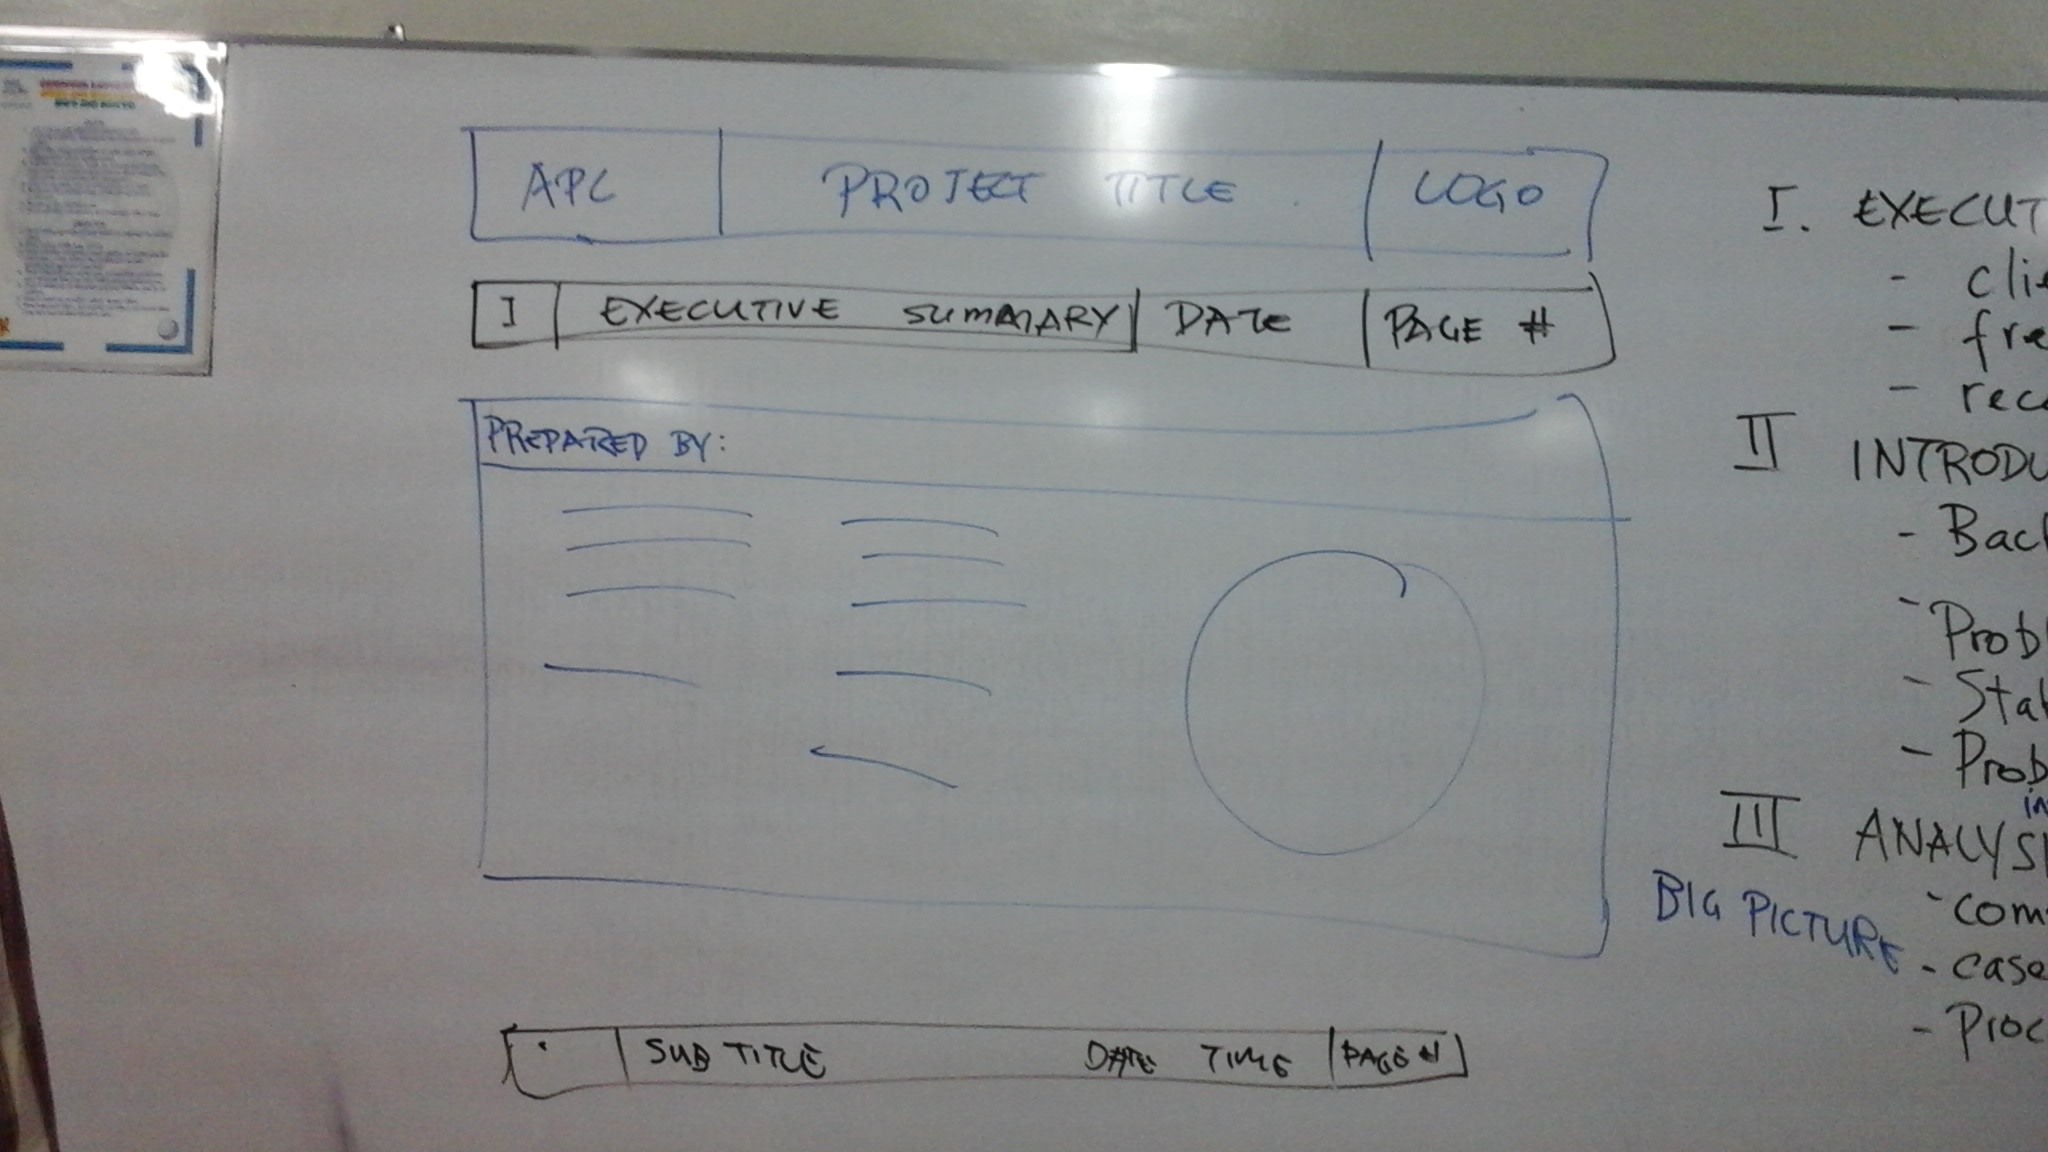 APC PROJECT TITLE LOGO
I EXECUTIVE SUMMARY DATE PAGE #
PREPARED BY:
SUB TITLE DATE TIME PAGE #
I. EXECUT
- clie
- fre
- rec
II INTRODU
- Back
- Prob
- Stat
- Prob
in
III ANALYSI
BIG PICTURE
- com
- case
- Proc